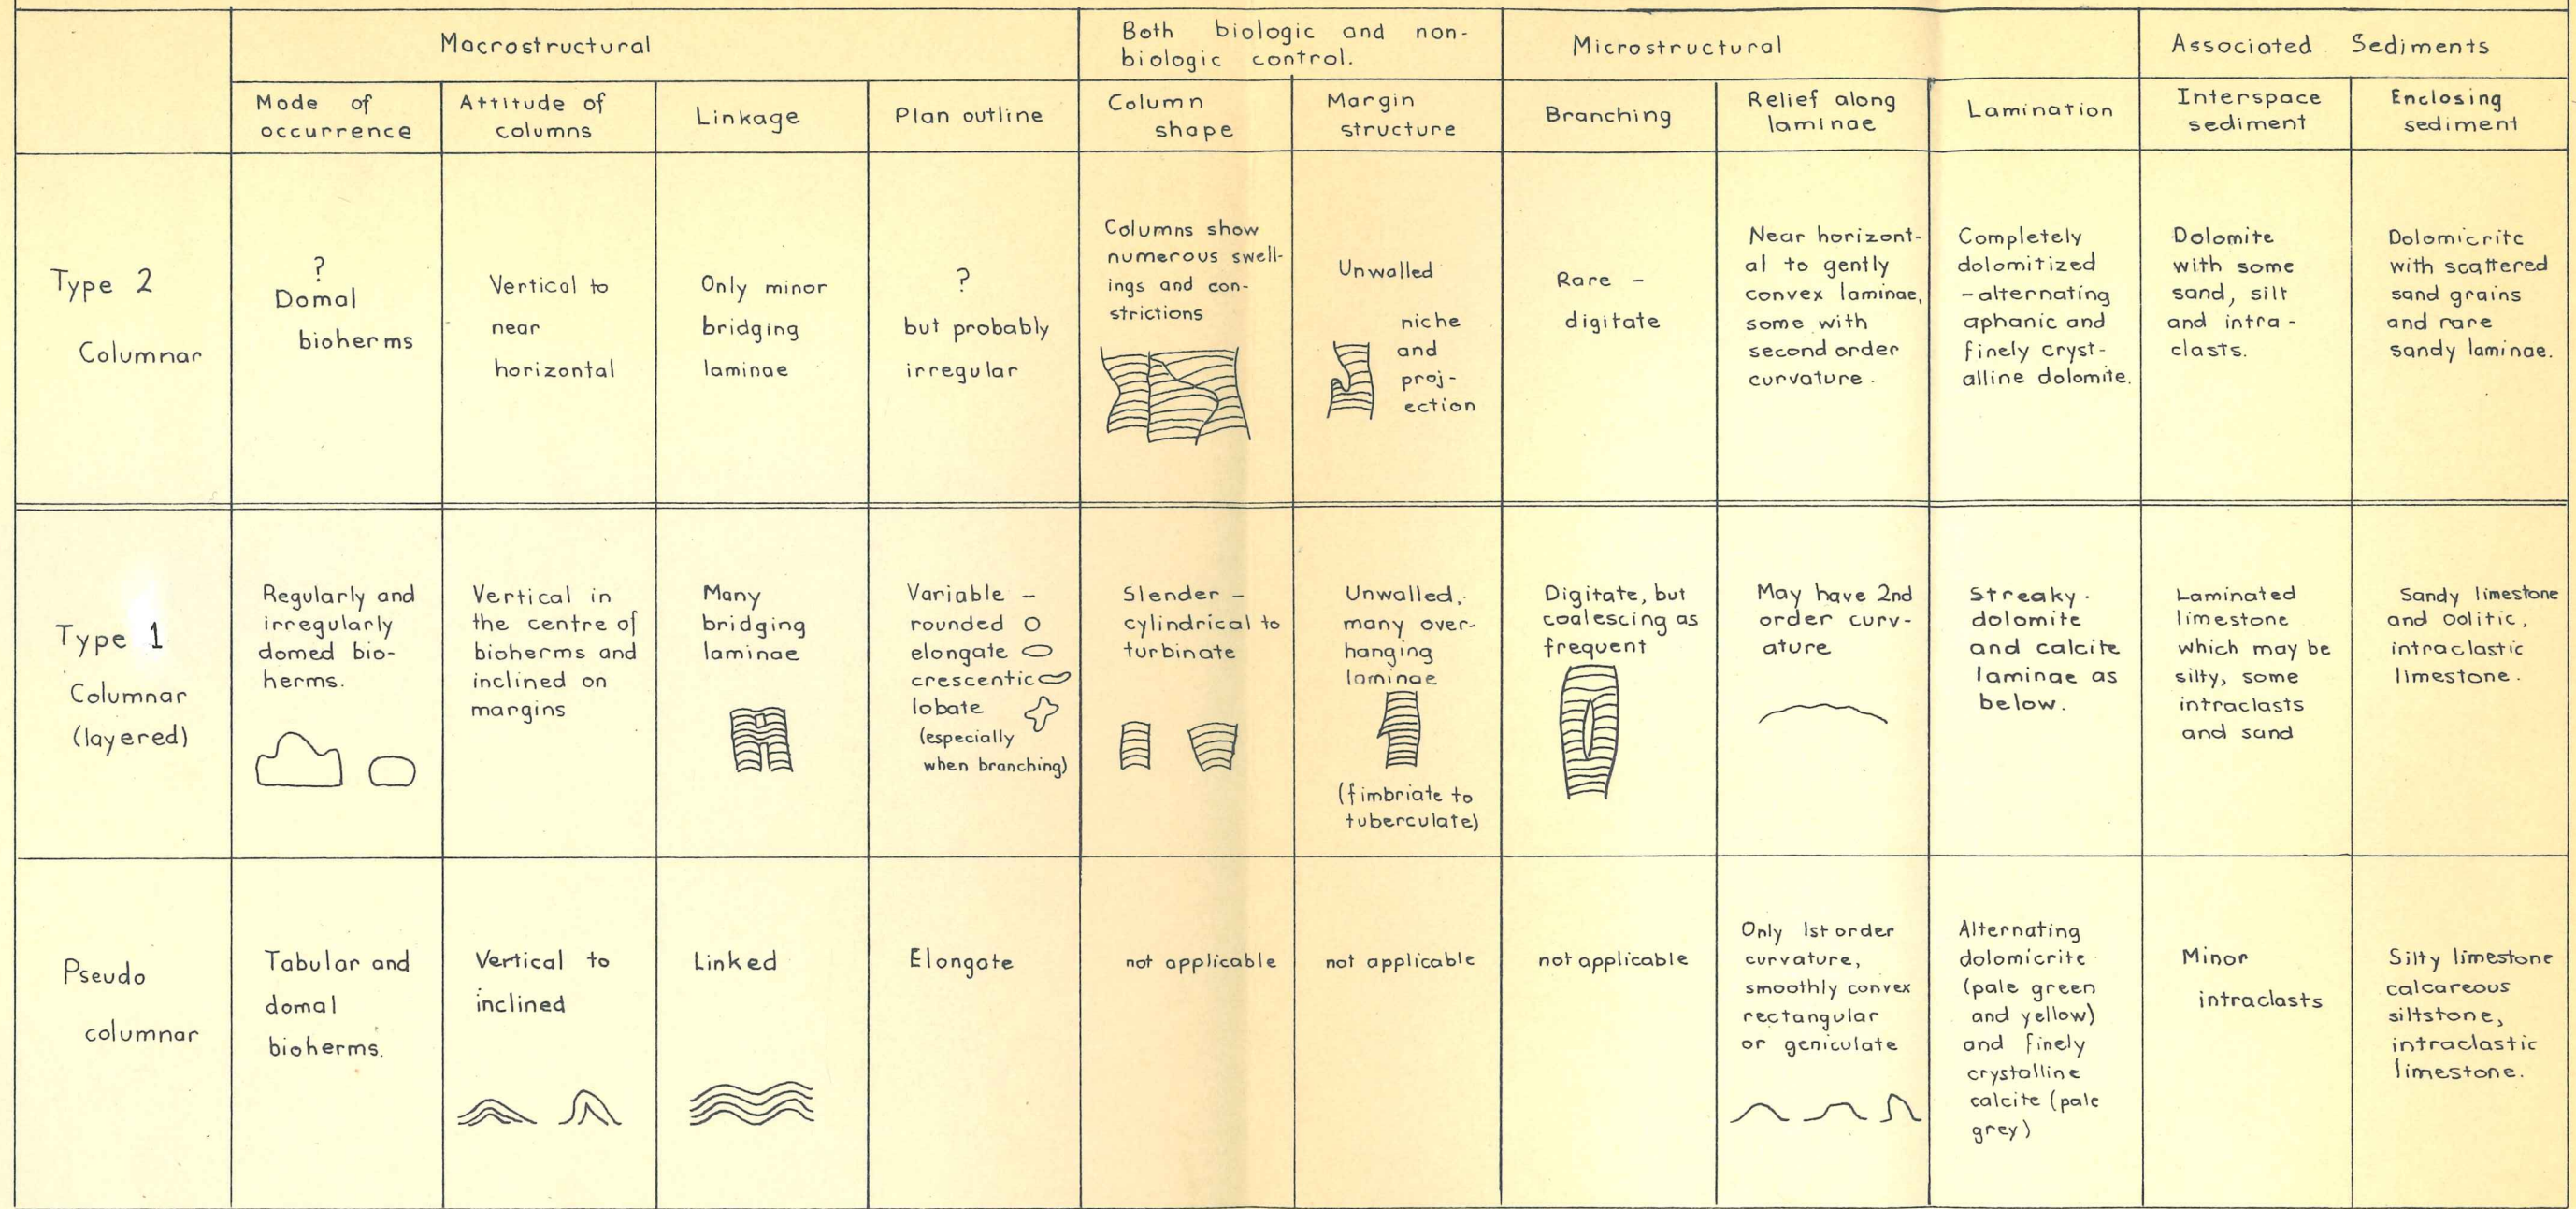 Macrostructural
Both biologic and non-
biologic control.
Microstructural
Associated Sediments
Mode of
occurrence
Attitude of
columns
Linkage
Plan outline
Column
shape
Margin
structure
Branching
Relief along
laminae
Lamination
Interspace
sediment
Enclosing
sediment
Type 2
Columnar
?
Domal
bioherms
Vertical to
near
horizontal
Only minor
bridging
laminae
?
but probably
irregular
Columns show
numerous swell-
ings and con-
strictions
Unwalled
niche
and
proj-
ection
Rare -
digitate
Near horizont-
al to gently
convex laminae,
some with
second order
curvature.
Completely
dolomitized
- alternating
aphanic and
finely cryst-
alline dolomite.
Dolomite
with some
sand, silt
and intra-
clasts.
Dolomicrite
with scattered
sand grains
and rare
sandy laminae.
Type 1
Columnar
(layered)
Regularly and
irregularly
domed bio-
herms.
Vertical in
the centre of
bioherms and
inclined on
margins
Many
bridging
laminae
Variable -
rounded
elongate
crescentic
lobate
(especially
when branching)
Slender -
cylindrical to
turbinate
Unwalled,
many over-
hanging
laminae
(fimbriate to
tuberculate)
Digitate, but
coalescing as
frequent
May have 2nd
order curv-
ature
Streaky.
dolomite
and calcite
laminae as
below.
Laminated
limestone
which may be
silty, some
intraclasts
and sand
Sandy limestone
and oolitic,
intraclastic
limestone.
Pseudo
columnar
Tabular and
domal
bioherms.
Vertical to
inclined
Linked
Elongate
not applicable
not applicable
not applicable
Only 1st order
curvature,
smoothly convex
rectangular
or geniculate
Alternating
dolomicrite
(pale green
and yellow)
and finely
crystalline
calcite (pale
grey)
Minor
intraclasts
Silty limestone
calcareous
siltstone,
intraclastic
limestone.